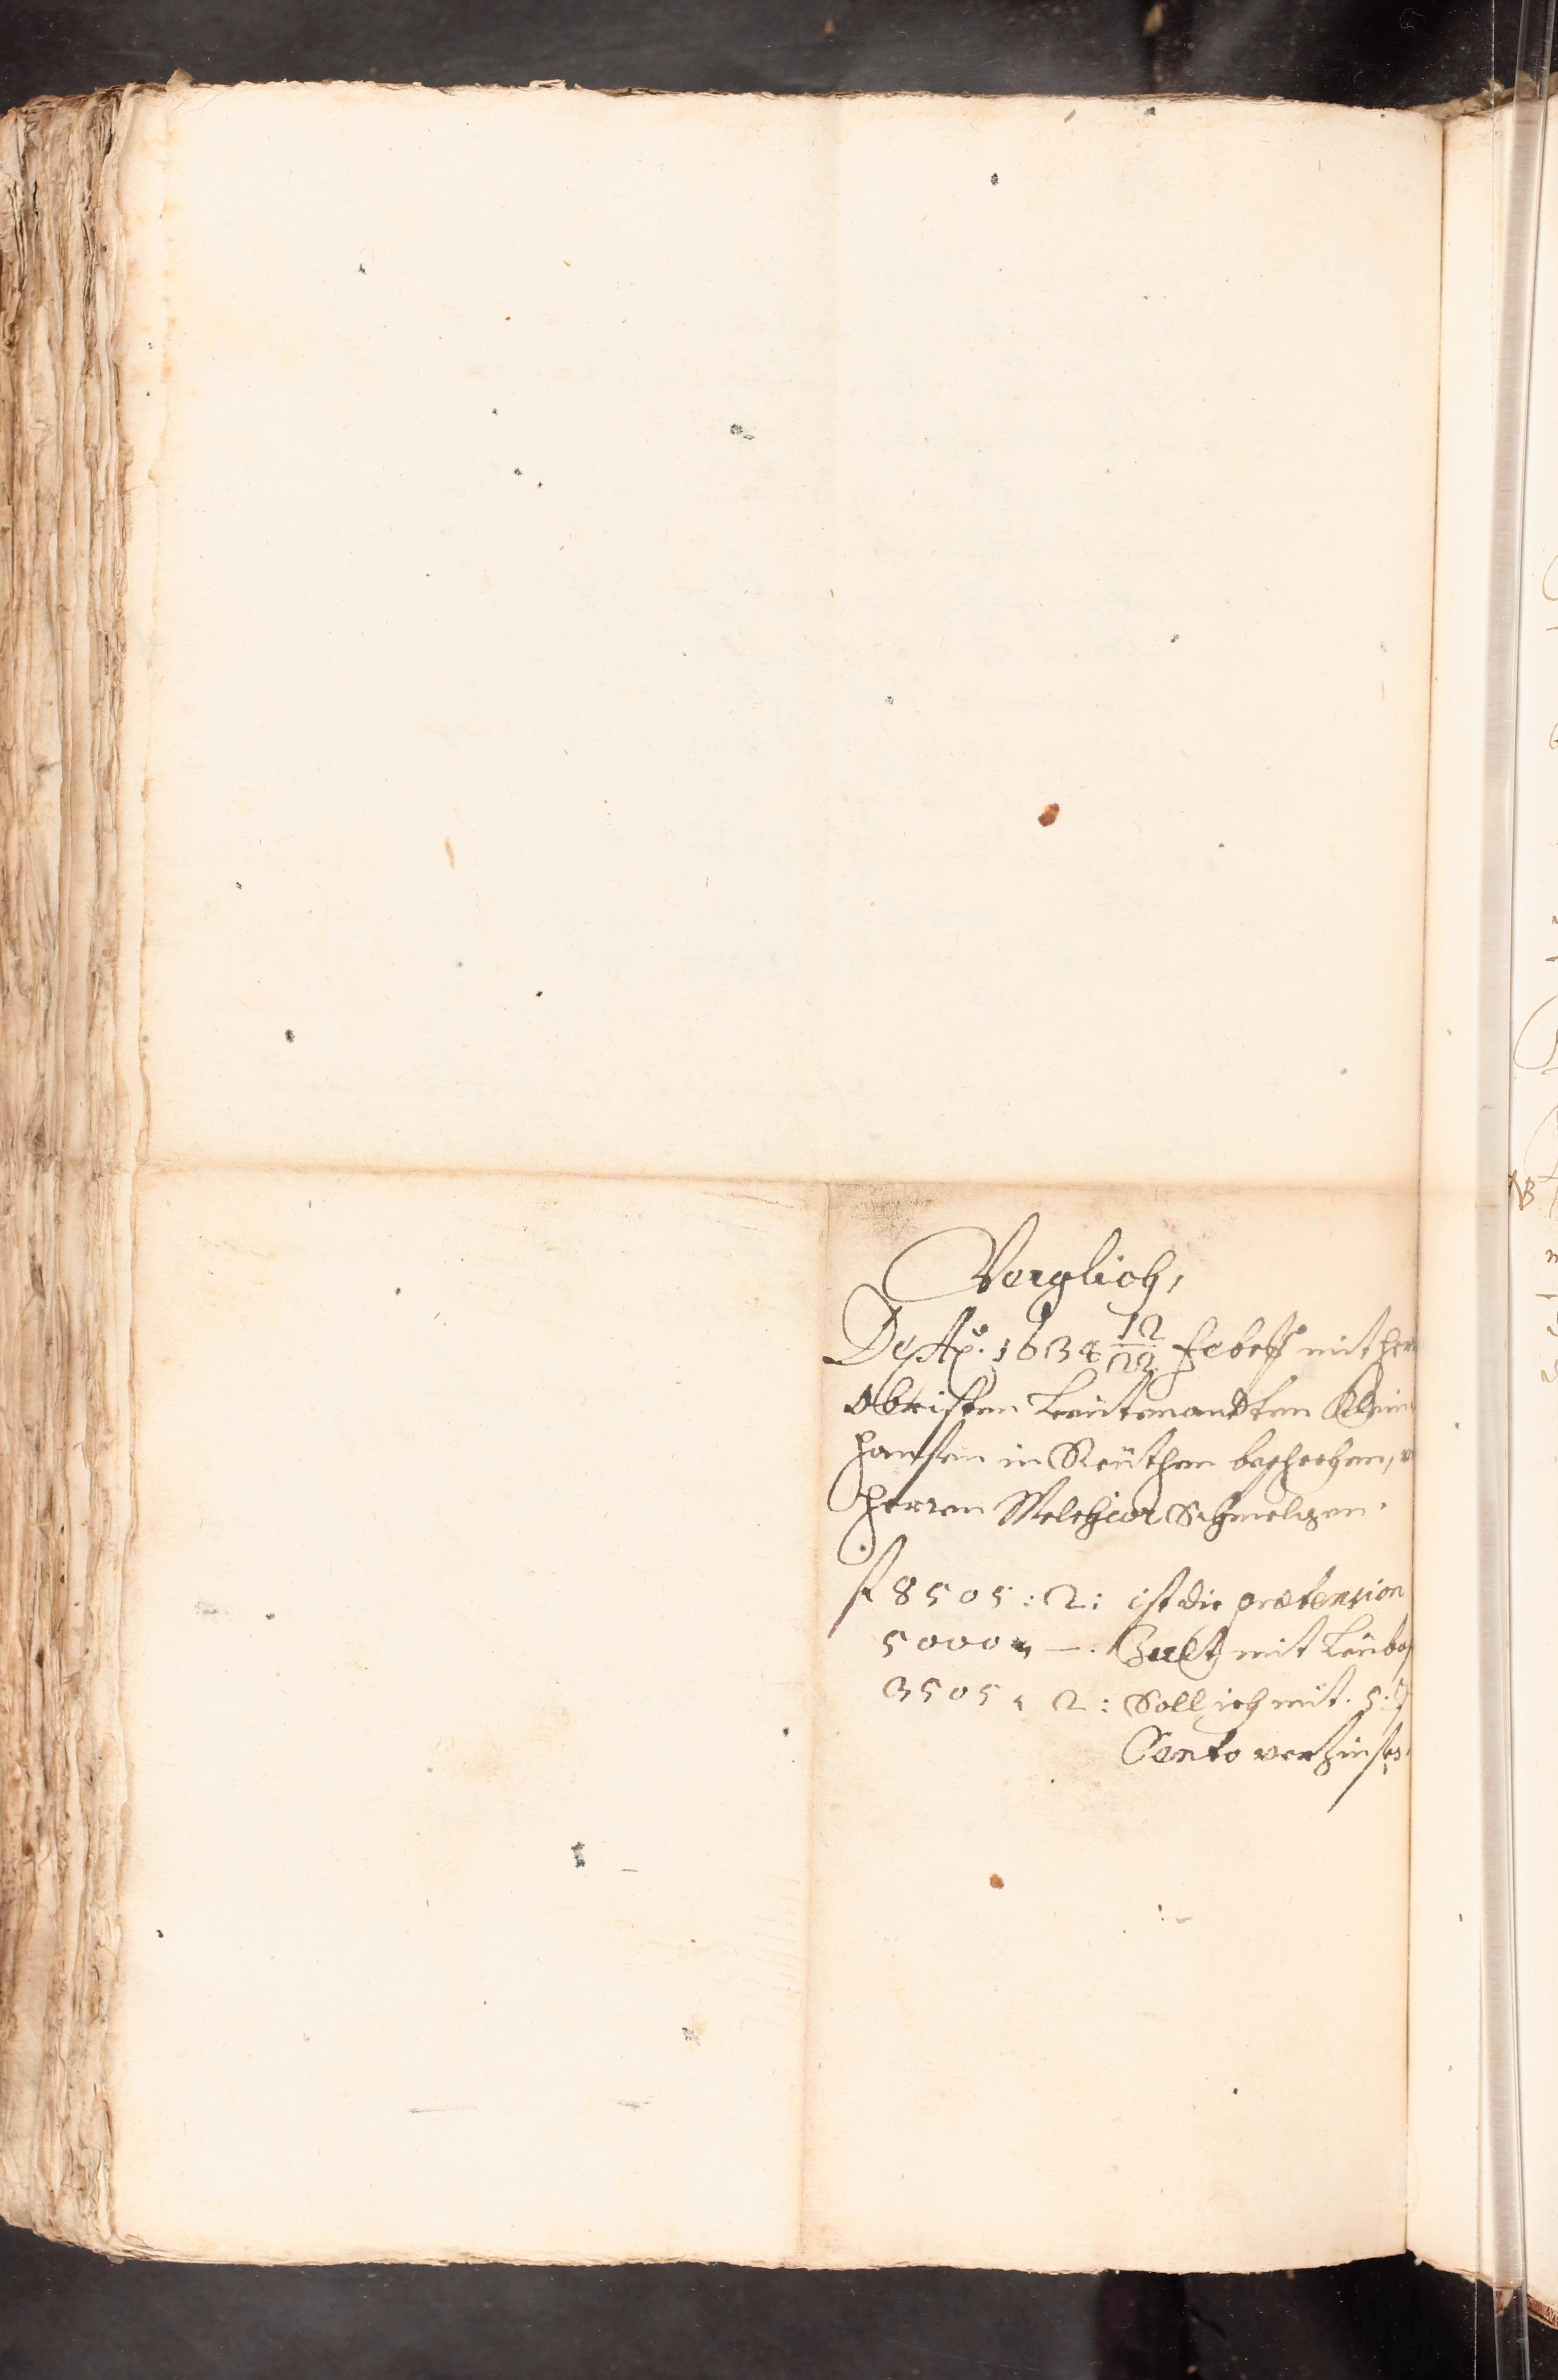 Verglich,
De Aº. 1634 12/22 Feb. mit her
Obristen Leutenandten Klein
hansen in Reüthen beschechen,
herren Melchior Schmelzen.
f 8505 : 2 : ist die prætension
5000 — . Zalt mit
3505 : 2 : Soll ich mit . 5 :
Cento verzinsen.
NB